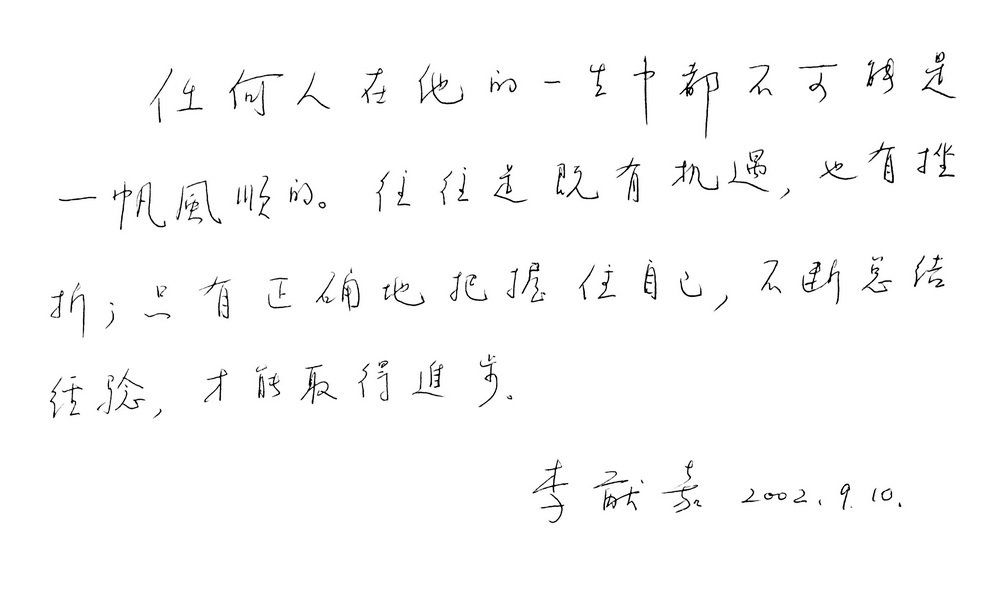 任何人在他的一生中都不可能是
一帆風順的。往往是既有机遇,也有挫
折;只有正确地把握住自己,不断总结
经验,才能取得進步。
李献嘉 2002.9.10.